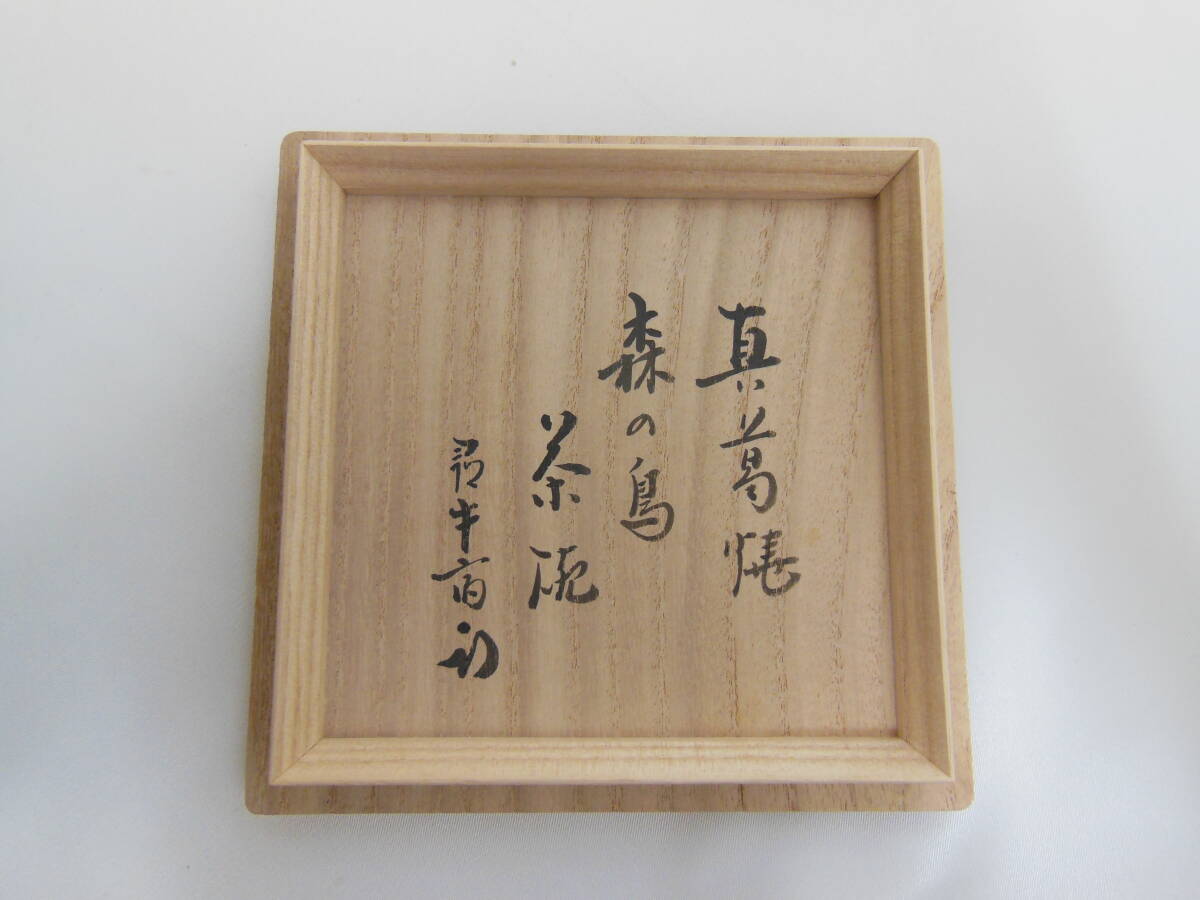 真葛焼
森の鳥
茶碗